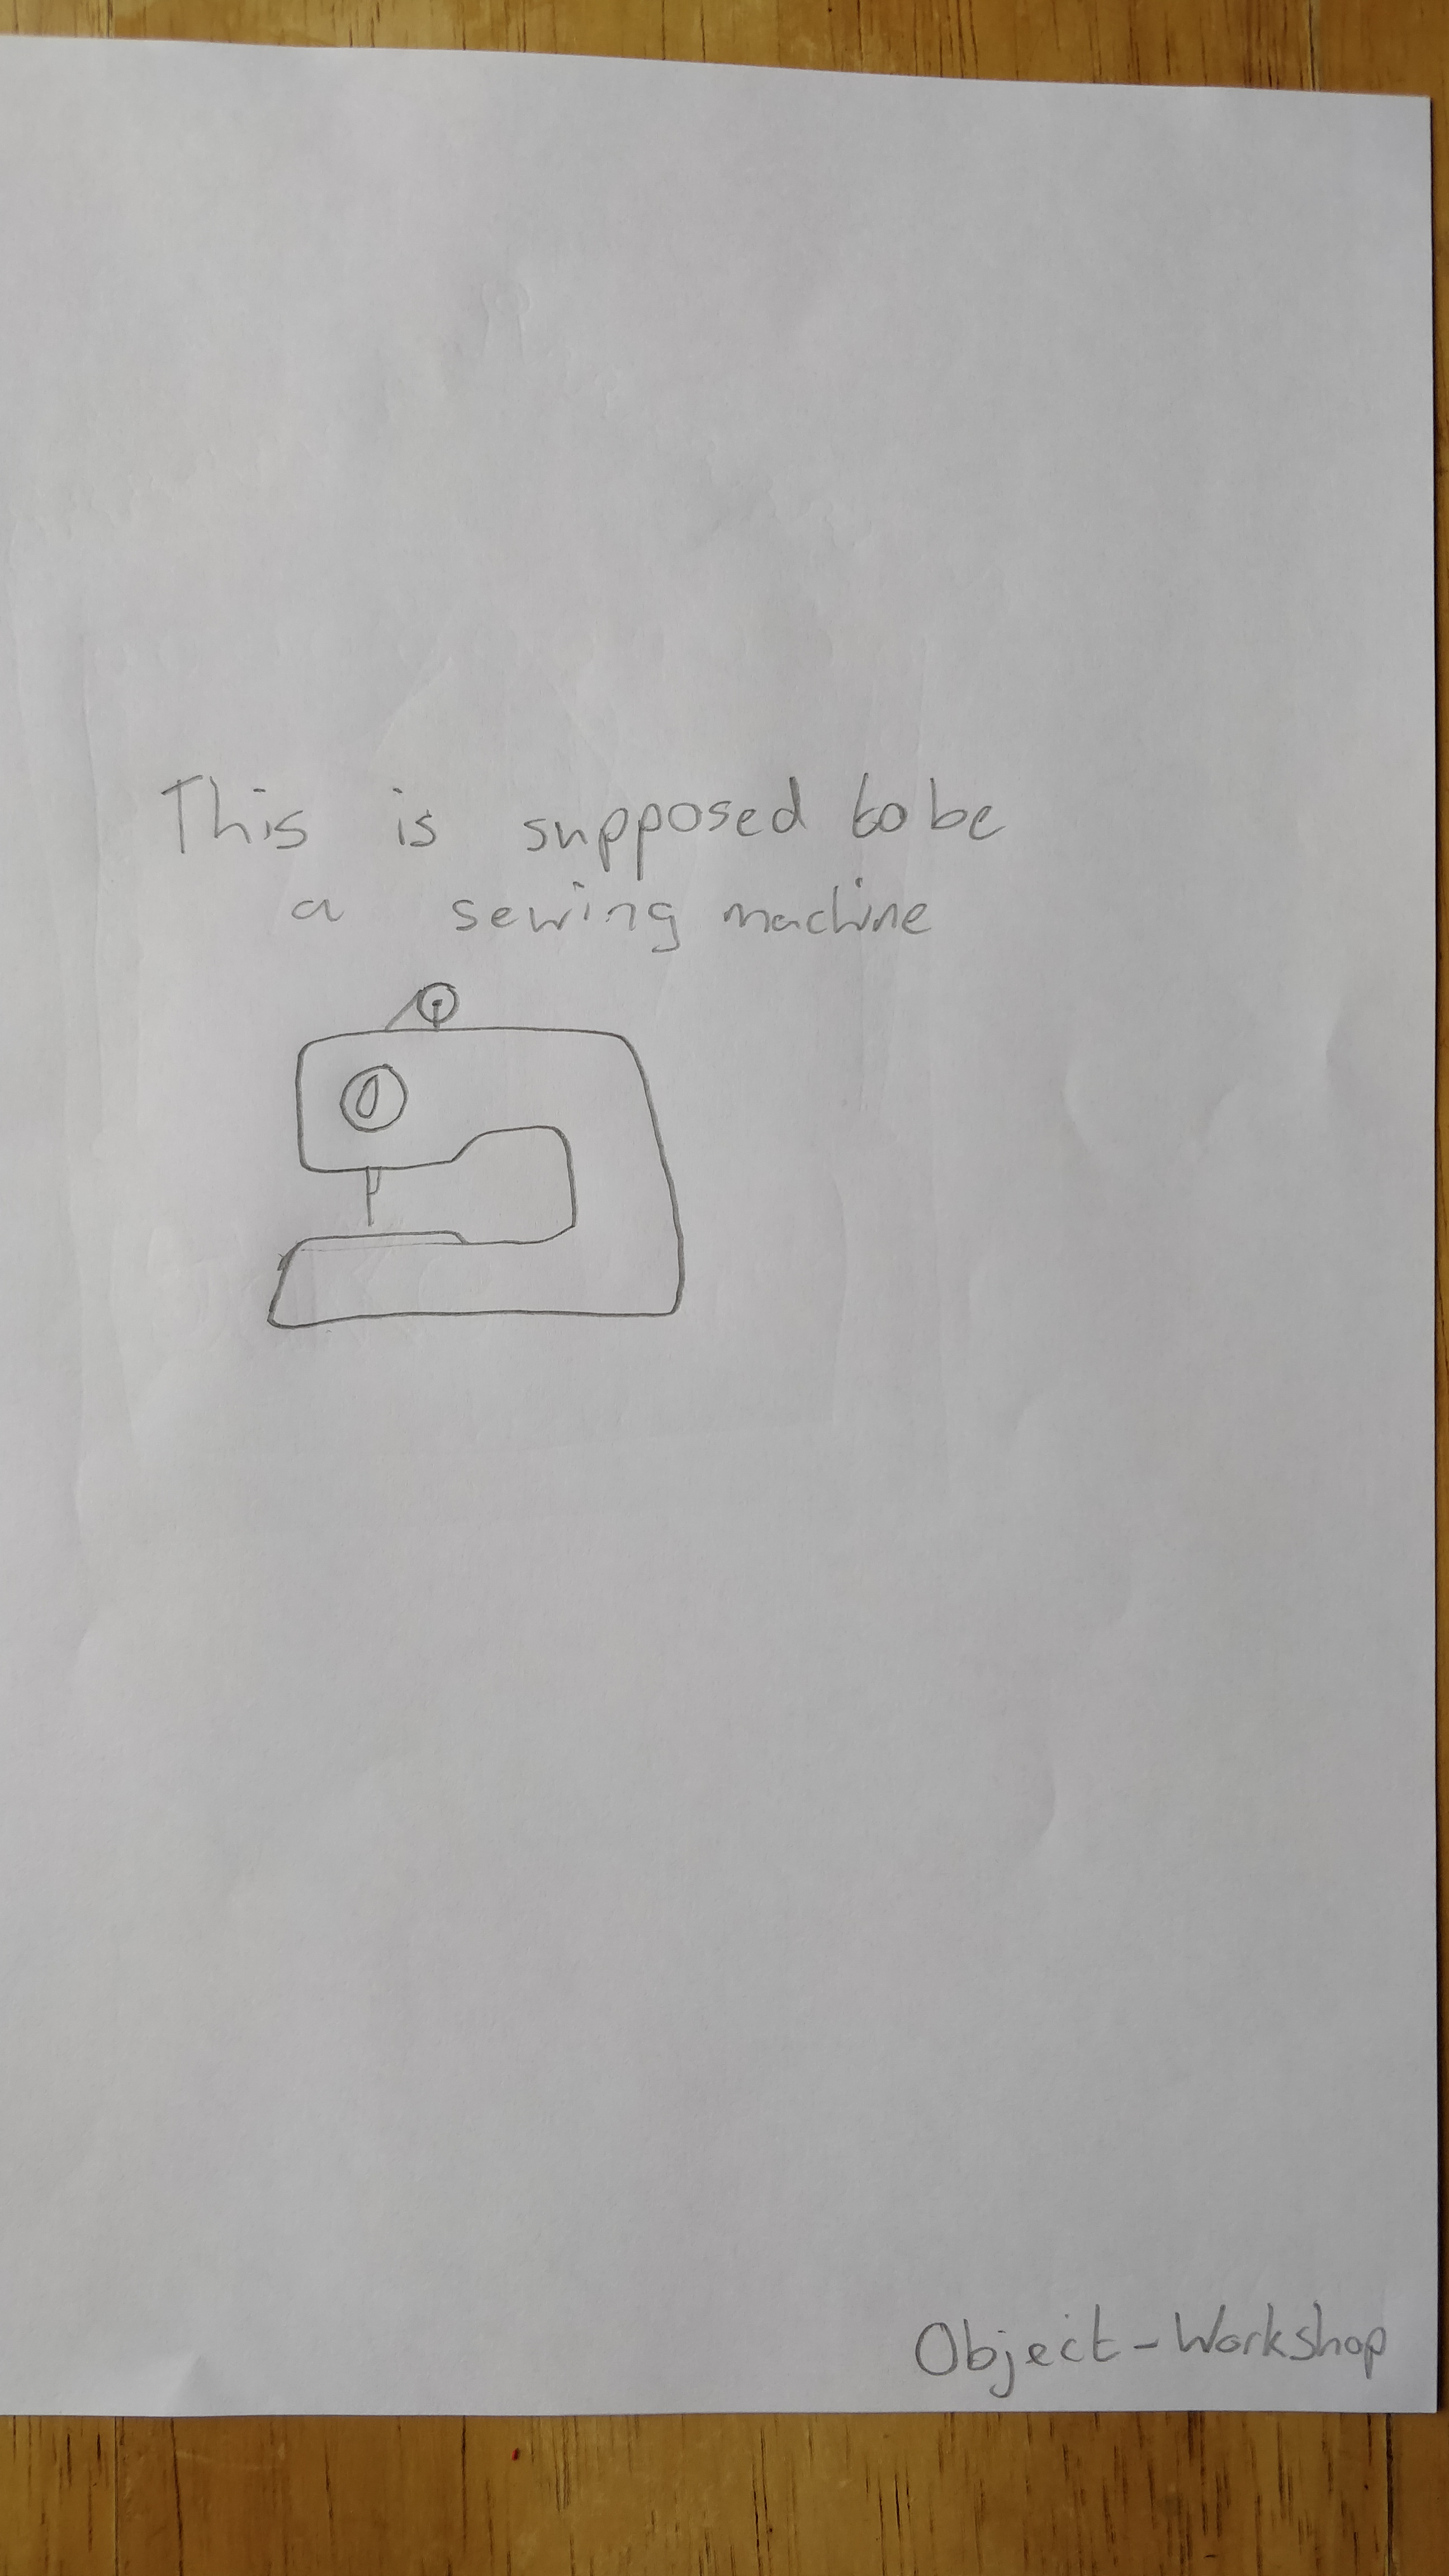 This is supposed to be
a sewing machine
Object-Workshop